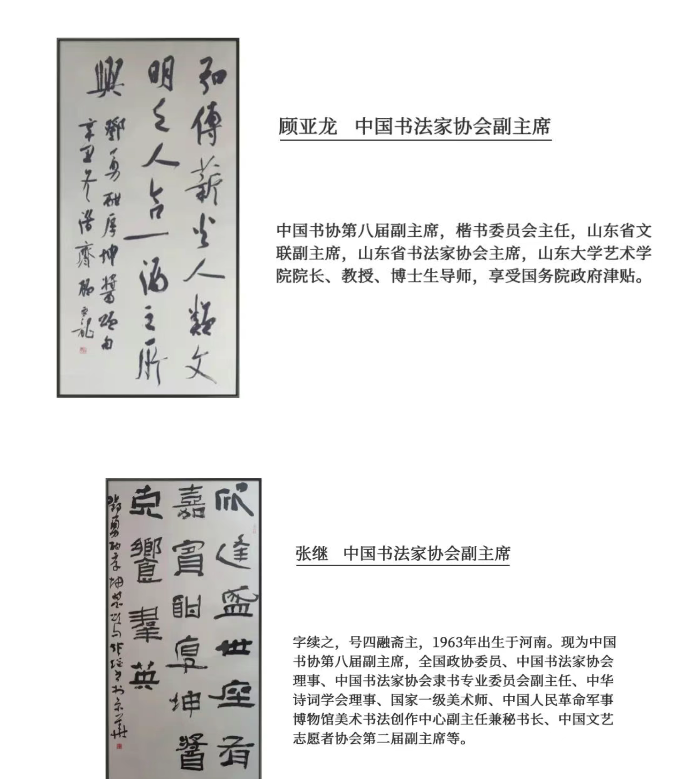 弘傳薪火人類文
明天人合一酒之所
興
鄧勇酣厚坤醬題句
辛丑冬
顾亚龙 中国书法家协会副主席
中国书协第八届副主席，楷书委员会主任，山东省文
联副主席，山东省书法家协会主席，山东大学艺术学
院院长、教授、博士生导师，享受国务院政府津贴。
欣逢盛世座有
嘉賓酣厚坤醬
克饗羣英
张继 中国书法家协会副主席
字续之，号四融斋主，1963年出生于河南。现为中国
书协第八届副主席，全国政协委员、中国书法家协会
理事、中国书法家协会隶书专业委员会副主任、中华
诗词学会理事、国家一级美术师、中国人民革命军事
博物馆美术书法创作中心副主任兼秘书长、中国文艺
志愿者协会第二届副主席等。